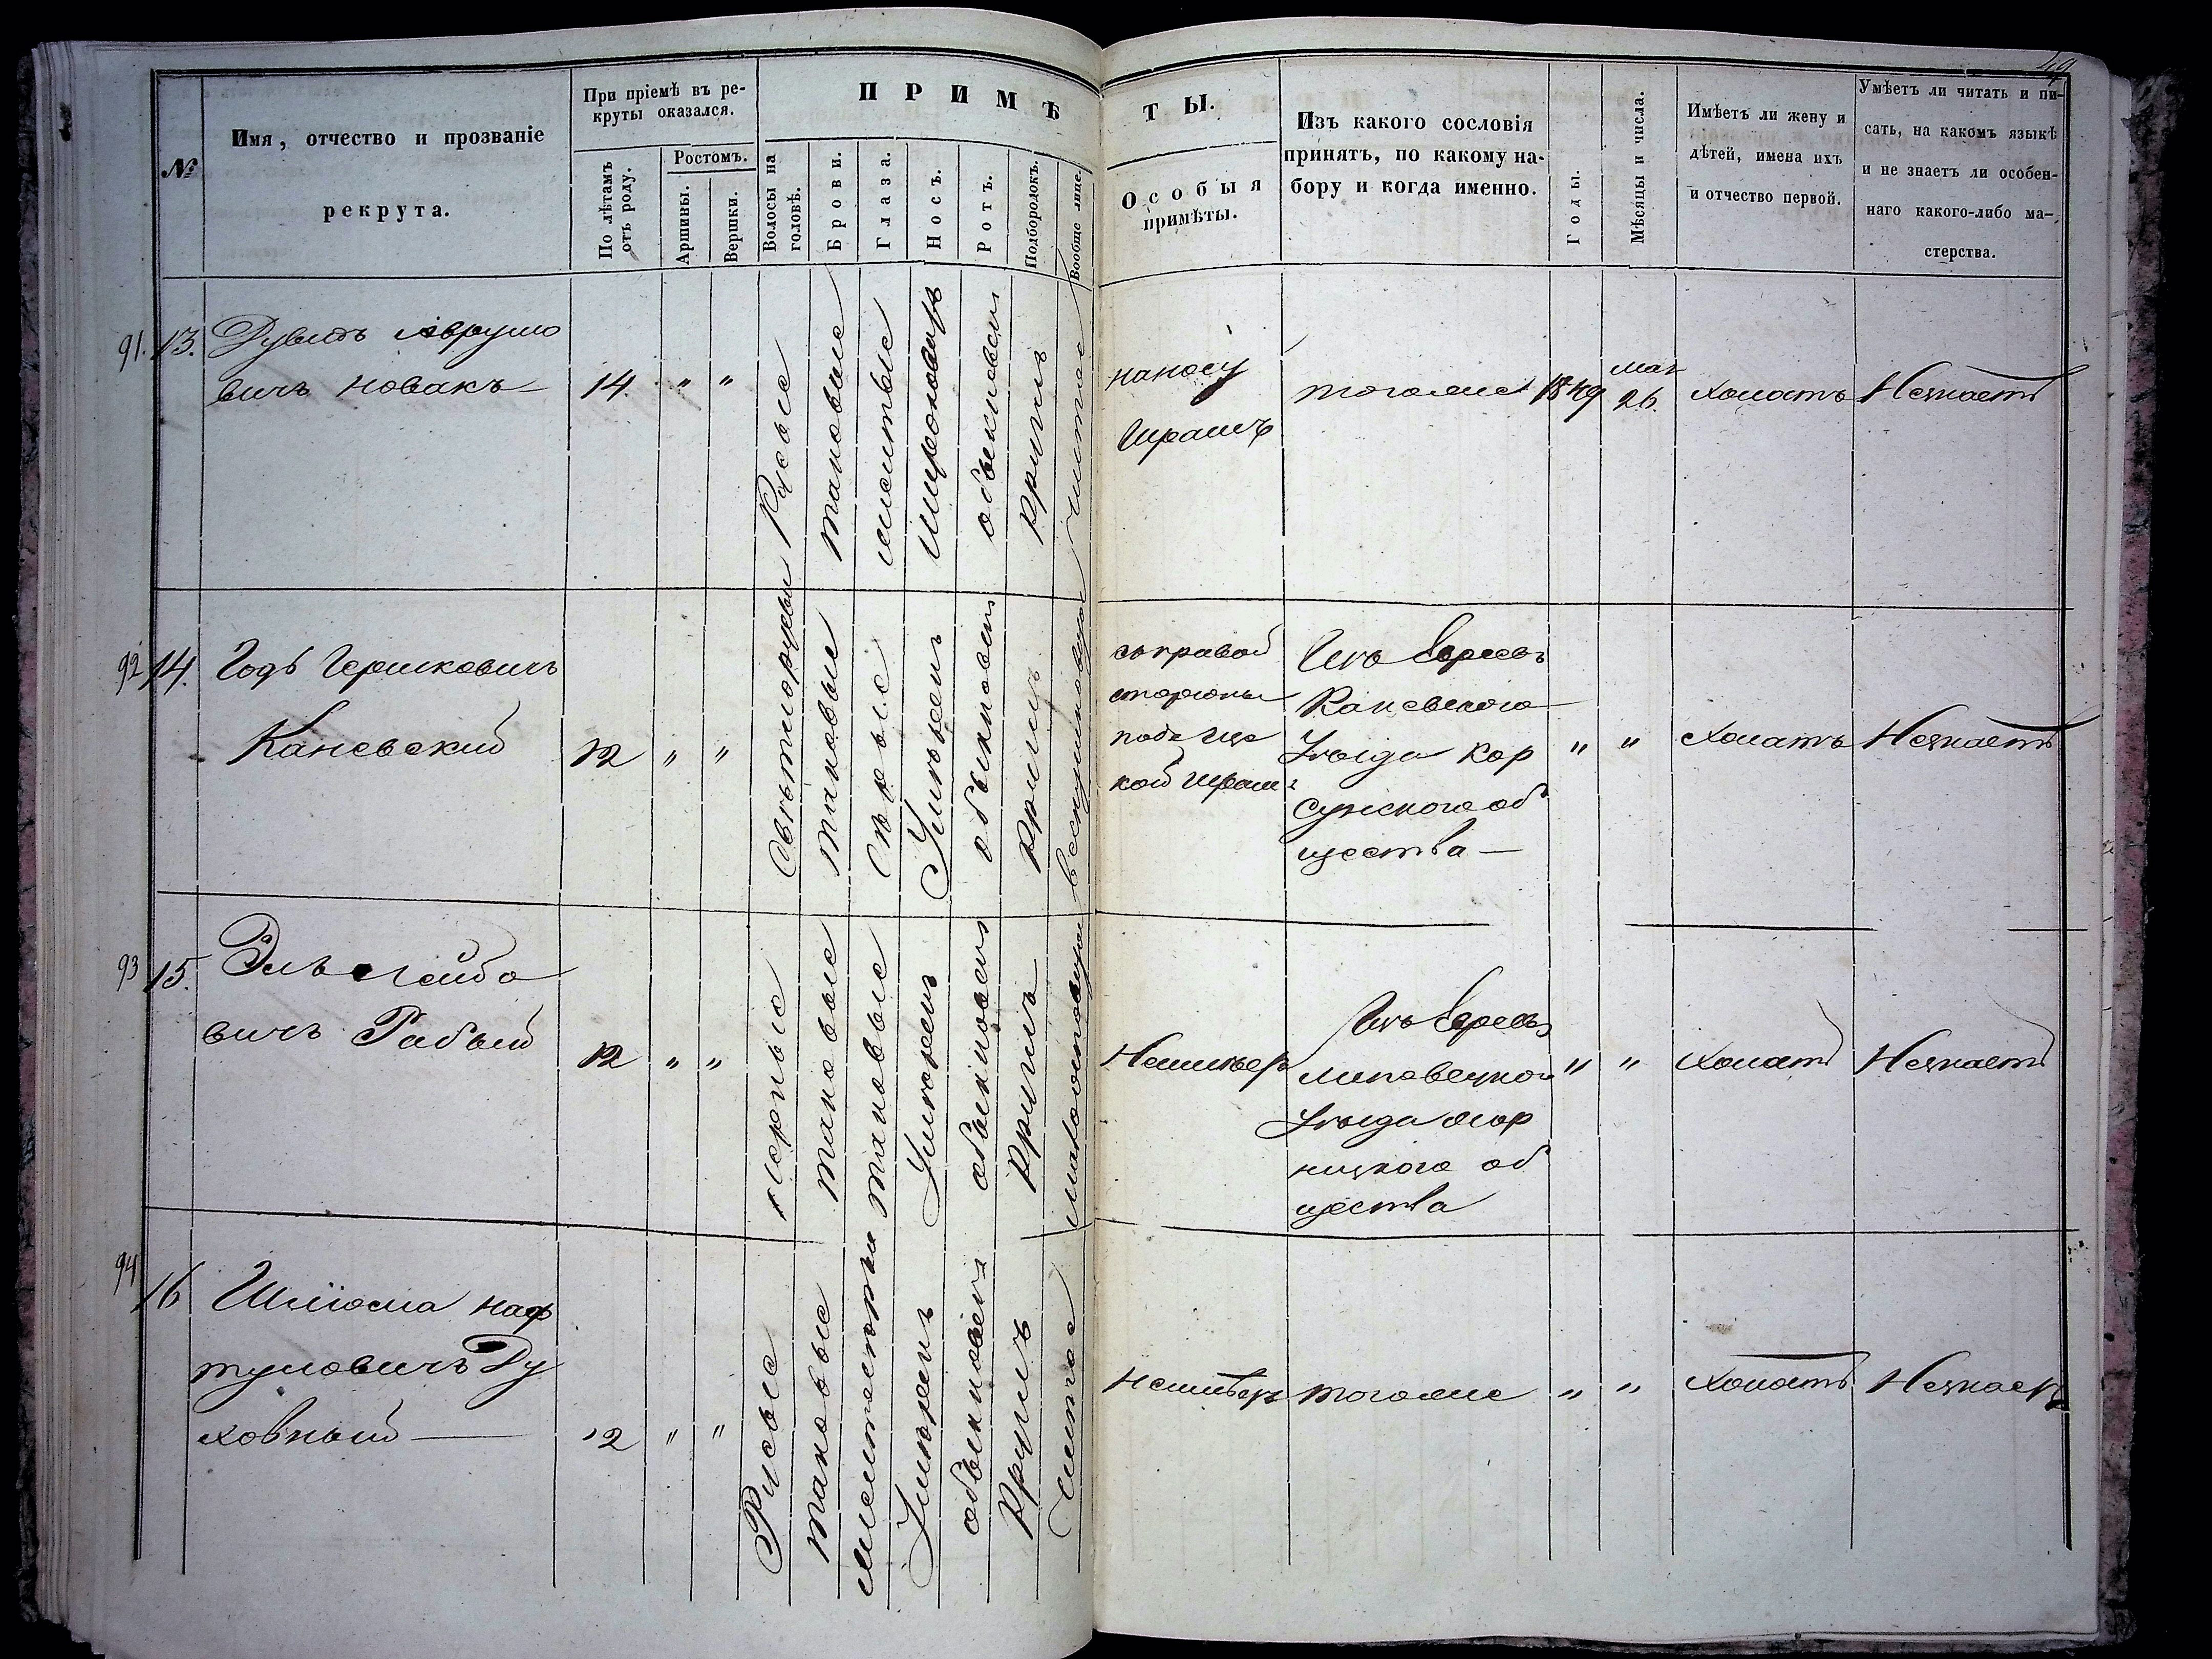 49
№
Имя, отчество и прозваніе
рекрута.
При пріемѣ въ ре-
круты оказался.
По лѣтамъ
отъ роду.
Ростомъ.
Аршины.
Вершки.
ПРИМѢ
ТЫ.
Волосы на
головѣ.
Брови.
Глаза.
Носъ.
Ротъ.
Подбородокъ.
Вообще лице.
Особыя
примѣты.
Изъ какого сословія
принятъ, по какому на-
бору и когда именно.
Годы.
Мѣсяцы и числа.
Имѣетъ ли жену и
дѣтей, имена ихъ
и отчество первой.
Умѣетъ ли читать и пи-
сать, на какомъ языкѣ
и не знаетъ ли особен-
наго какого-либо ма-
стерства.
91. 13.
Рувинъ Аврумо
вичъ Новакъ
14. " "
Русые
таковые
желтые
Широковатъ
обыкновен
Круглъ
чистое
на носу
Шрамъ
тогоже
1849
мая
26.
Холостъ
Незнаетъ
92 14.
Годъ Гершковичъ
Каневский
12 " "
Свѣтлорусые
таковые
Сѣрые
Умѣренъ
обыкновен
Круглъ
веснушковатое
съ правой
стороны
подъ Ще
кой Шрам
Изъ Евреевъ
Каневского
Уѣзда Кор
сунского об
щества —
" "
Холостъ
Незнаетъ
93 15.
Эль Лейбо
вичъ Рабый
12 " "
Черные
таковые
таковые
Умѣренъ
обыкновен
Круглъ
Неимѣетъ
Изъ Евреевъ
Липовецкого
Уѣзда
ницкого об
щества
" "
Холостъ
Незнаетъ
94 16
Шлiома Наф
туловичъ Ду
ховный —
12 " "
Русые
таковые
Умѣренъ
обыкновен
Круглъ
Чистое
Неимѣетъ
тогоже
" "
Холостъ
Незнаетъ